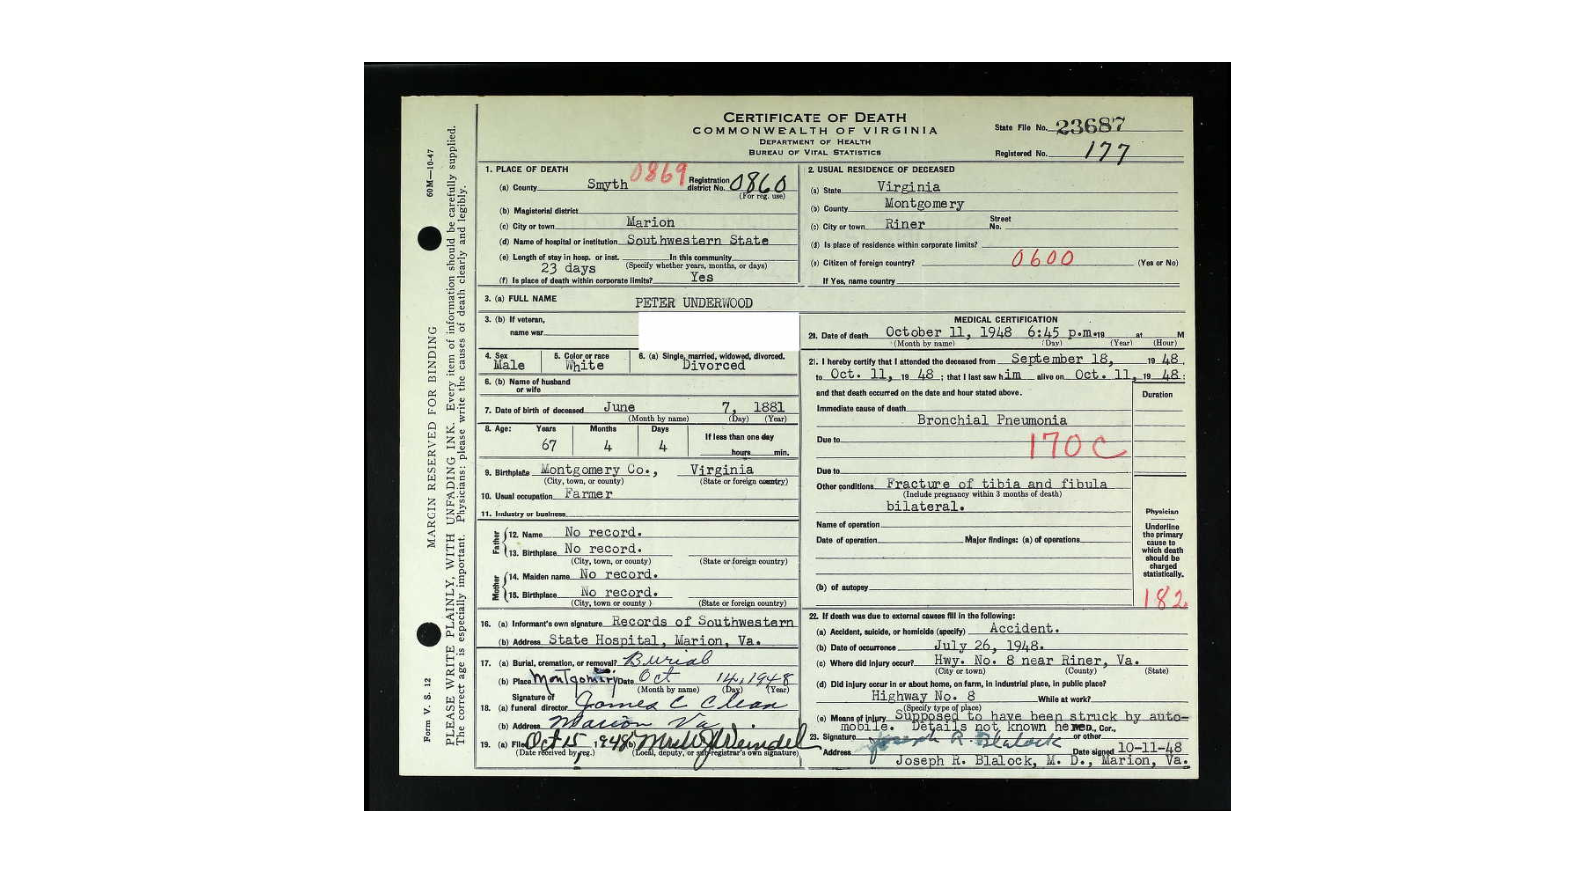 CERTIFICATE OF DEATH
COMMONWEALTH OF VIRGINIA
DEPARTMENT OF HEALTH
BUREAU OF VITAL STATISTICS
State File No. 23687
Registered No. 177
60M—10-47
MARGIN RESERVED FOR BINDING
Form V. S. 12
PLEASE WRITE PLAINLY, WITH UNFADING INK. Every item of information should be carefully supplied.
The correct age is especially important. Physicians: please write the causes of death clearly and legibly.
1. PLACE OF DEATH 0869
(a) County Smyth Registration district No. 0860
(For reg. use)
(b) Magisterial district
(c) City or town Marion
(d) Name of hospital or institution Southwestern State
(e) Length of stay in hosp. or inst. In this community
23 days (Specify whether years, months, or days)
(f) Is place of death within corporate limits? Yes
2. USUAL RESIDENCE OF DECEASED
(a) State Virginia
(b) County Montgomery
(c) City or town Riner Street No.
(d) Is place of residence within corporate limits?
(e) Citizen of foreign country? 0600 (Yes or No)
If Yes, name country
3. (a) FULL NAME PETER UNDERWOOD
3. (b) If veteran,
name war
4. Sex Male
5. Color or race White
6. (a) Single, married, widowed, divorced. Divorced
6. (b) Name of husband
or wife
7. Date of birth of deceased June 7, 1881
(Month by name) (Day) (Year)
8. Age: Years Months Days If less than one day
67 4 4 hours min.
9. Birthplace Montgomery Co., Virginia
(City, town, or county) (State or foreign country)
10. Usual occupation Farmer
11. Industry or business
Father
12. Name No record.
13. Birthplace No record.
(City, town, or county) (State or foreign country)
Mother
14. Maiden name No record.
15. Birthplace No record.
(City, town or county ) (State or foreign country)
16. (a) Informant's own signature Records of Southwestern
(b) Address State Hospital, Marion, Va.
17. (a) Burial, cremation, or removal? Burial
(b) Place Montgomery Date Oct 14, 1948
(Month by name) (Day) (Year)
Signature of
18. (a) funeral director James C Clean
(b) Address Marion Va
19. (a) Filed Oct 15, 1948 (b)
(Date received by reg.) (Local, deputy, or sub-registrar's own signature)
MEDICAL CERTIFICATION
20. Date of death October 11, 1948 6:45 p.m. 19 at M
(Month by name) (Day) (Year) (Hour)
21. I hereby certify that I attended the deceased from September 18, 19 48,
to Oct. 11, 19 48; that I last saw him alive on Oct. 11, 19 48;
and that death occurred on the date and hour stated above.
Duration
Immediate cause of death
Bronchial Pneumonia
Due to 170 C
Due to
Other conditions Fracture of tibia and fibula
(Include pregnancy within 3 months of death)
bilateral.
Name of operation
Date of operation Major findings: (a) of operations
(b) of autopsy
Physician
Underline
the primary
cause to
which death
should be
charged
statistically.
182
22. If death was due to external causes fill in the following:
(a) Accident, suicide, or homicide (specify) Accident.
(b) Date of occurrence July 26, 1948.
(c) Where did injury occur? Hwy. No. 8 near Riner, Va.
(City or town) (County) (State)
(d) Did injury occur in or about home, on farm, in industrial place, in public place?
Highway No. 8 While at work?
(Specify type of place)
(e) Means of injury Supposed to have been struck by auto-
mobile. Details not known here. M.D., Cor.,
23. Signature Joseph R. Blalock or other
Address Date signed 10-11-48
Joseph R. Blalock, M. D., Marion, Va.